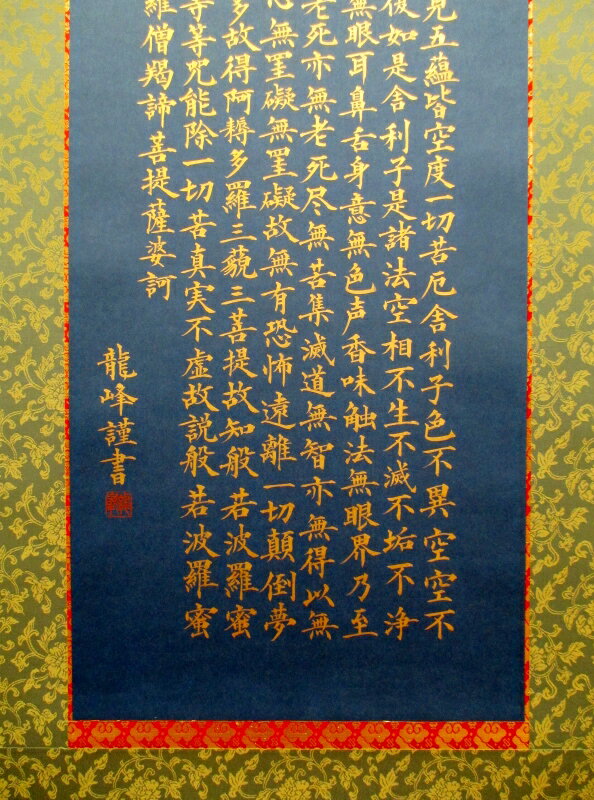 見五蘊皆空度一切苦厄舎利子色不異空空不
復如是舎利子是諸法空相不生不滅不垢不浄
無眼耳鼻舌身意無色声香味触法無眼界乃至
老死亦無老死尽無苦集滅道無智亦無得以無
心無罣礙無罣礙故無有恐怖遠離一切顛倒夢
多故得阿耨多羅三藐三菩提故知般若波羅蜜
等等呪能除一切苦真実不虚故説般若波羅蜜
羅僧羯諦菩提薩婆訶
龍峰謹書